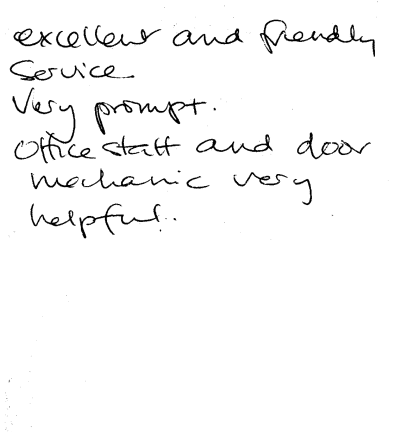 excellent and friendly
Service.
Very prompt.
Office staff and door
mechanic very
helpful..